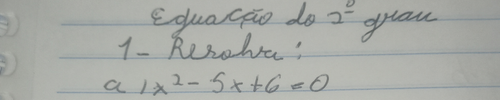 Equação do 2º grau
1- Resolva:
a) x² - 5x + 6 = 0